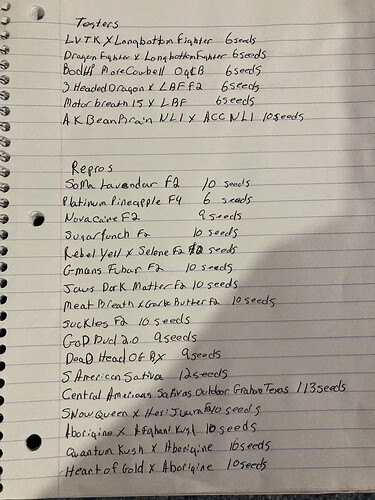 Testers
LVTK X Longbottom Fighter 6 seeds
Dragon Fighter x Longbottom Fighter 6 seeds
Bodhi More Cowbell OgKB 6 seeds
3 Headed Dragon x LBF F2 6 seeds
Motor breath 15 x LBF 6 seeds
AK Bean Brain NL1 X ACC NL1 10 seeds
Repros
Soma Lavendar F2 10 seeds
Platinum Pineapple F4 6 seeds
Novacaine F2 9 seeds
Sugar Punch F2 10 seeds
Rebel Yell x Selene F2 12 seeds
G-mans Fubar F2 10 seeds
Jaws Dark Matter F2 10 seeds
Meat Breath x Garlic Butter F2 10 seeds
Suckles F2 10 seeds
GoD Bud 2.0 9 seeds
Dead Head OG BX 9 seeds
S. American Sativa 12 seeds
Central American Sativas Outdoor Grown Texas 113 seeds
Snow Queen x 10 seeds
Aborigine x Afghani Kush 10 seeds
Quantum Kush x Aborigine 10 seeds
Heart of Gold x Aborigine 10 seeds